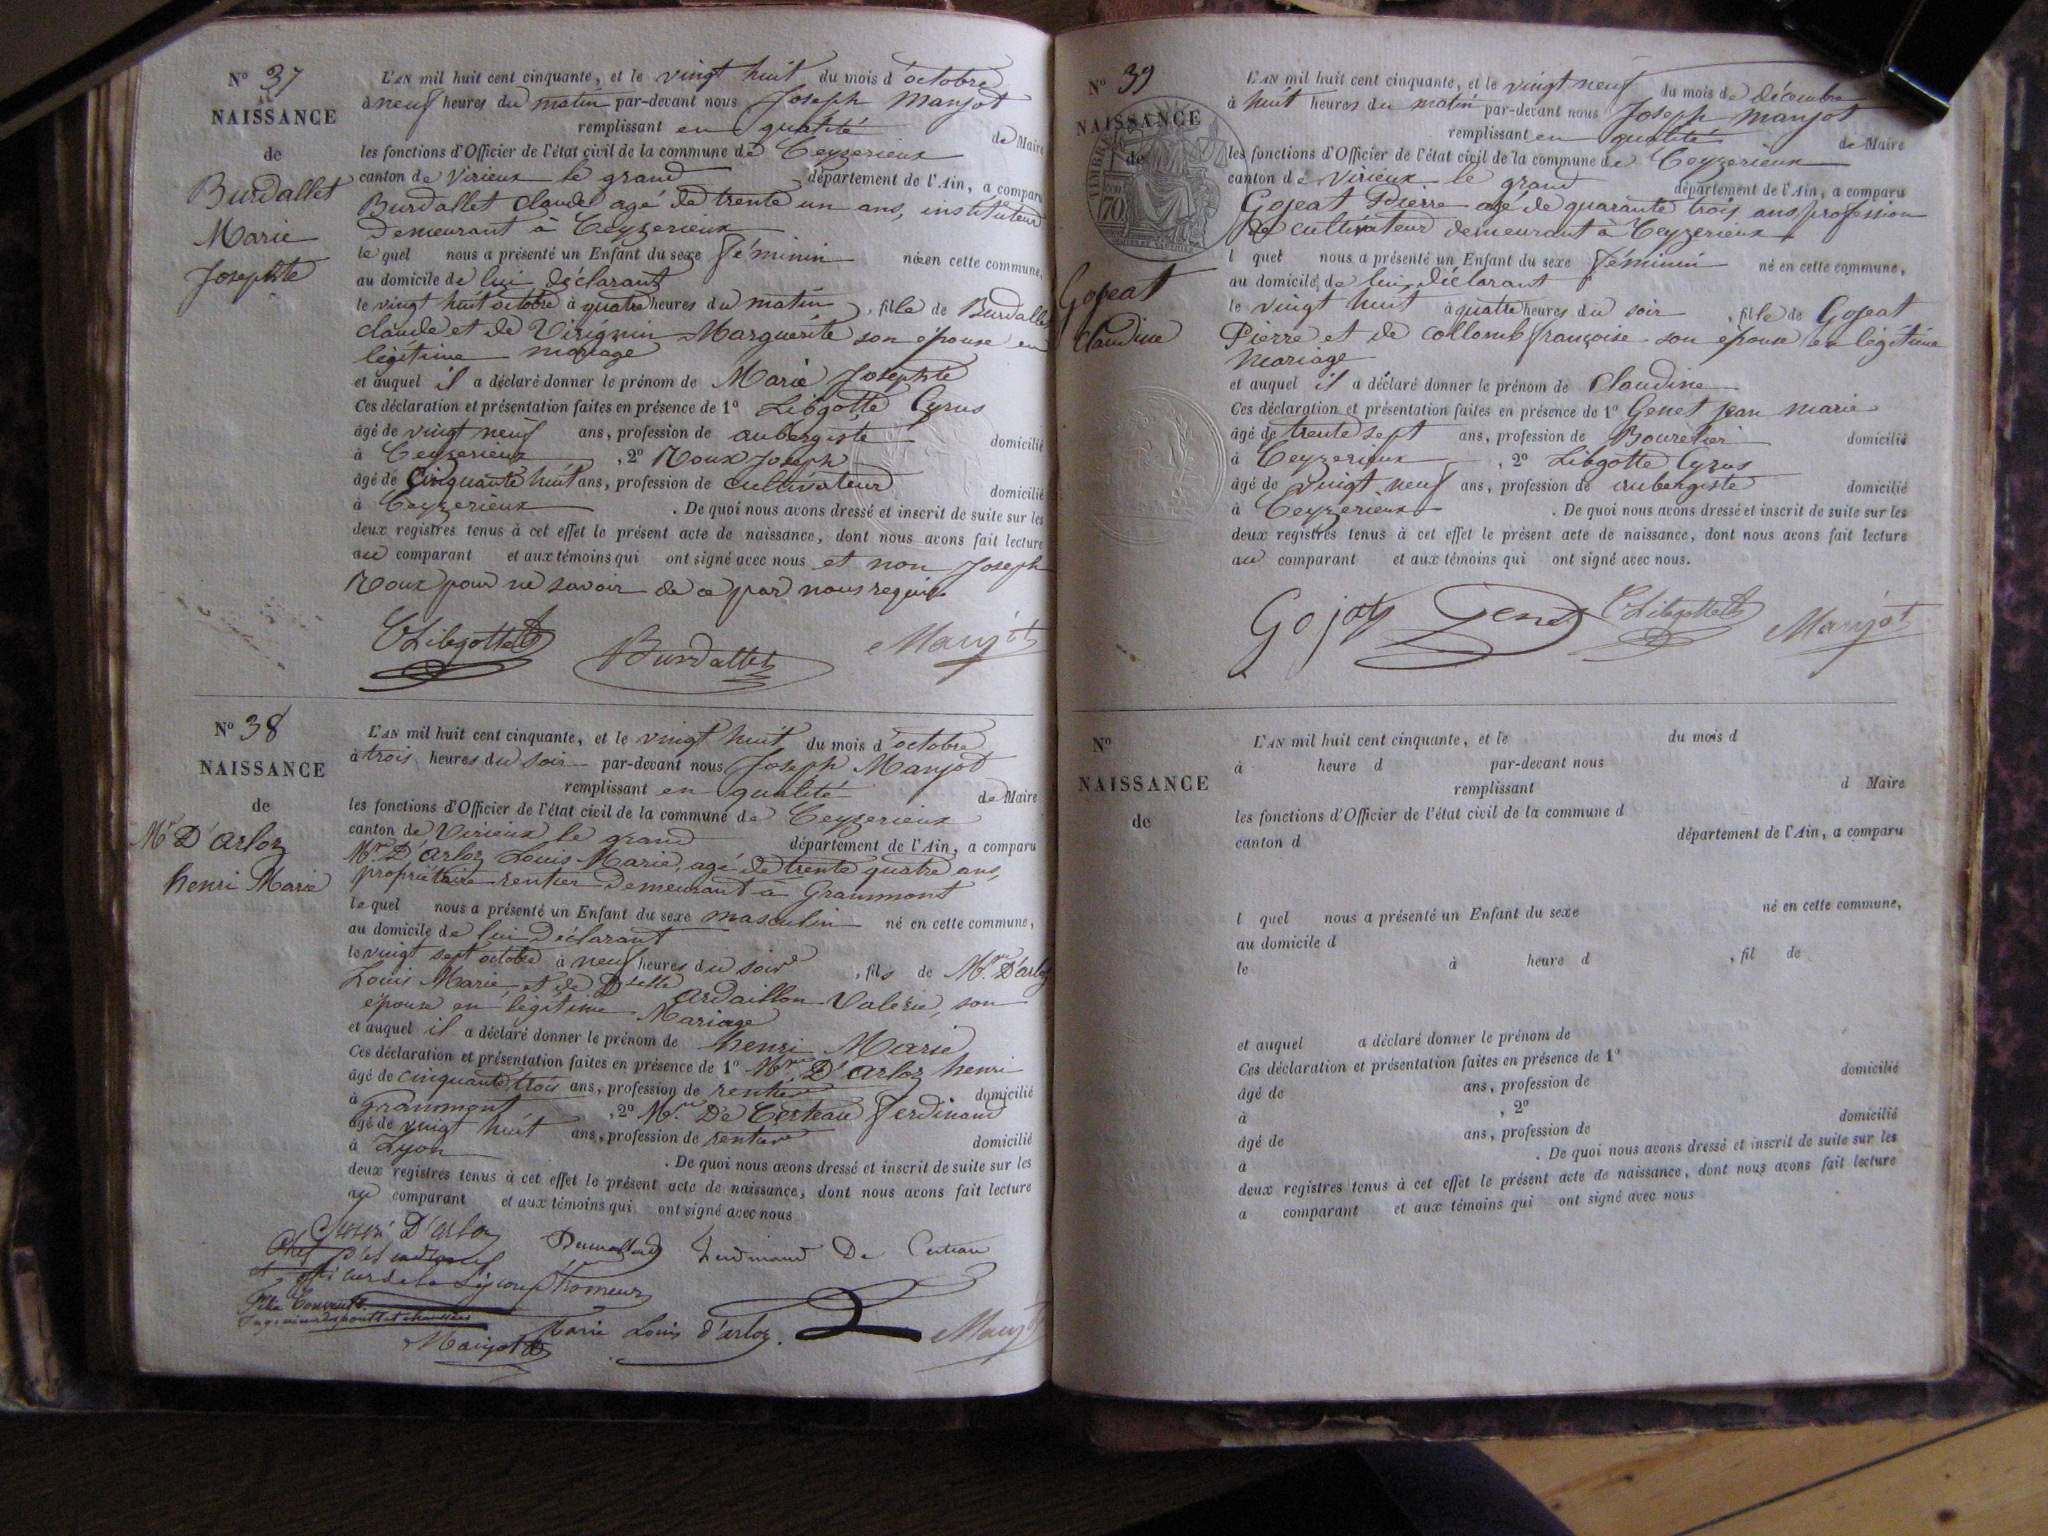 N° 37
NAISSANCE
de
Burdallet
Marie
Josephte
L'AN mil huit cent cinquante, et le vingt huit du mois d'octobre
à neuf heures du matin par-devant nous Joseph Manjot
remplissant en qualité de Maire
les fonctions d'Officier de l'état civil de la commune de Ceyzerieux
canton de Virieux le grand département de l'Ain, a comparu
Burdallet Claude agé de trente un ans, instituteur
demeurant à Ceyzerieux
le quel nous a présenté un Enfant du sexe féminin née en cette commune,
au domicile de lui déclarant
le vingt huit octobre à quatre heures du matin, fille de Burdallet
Claude et de Virignin Marguerite son épouse en
légitime mariage
et auquel il a déclaré donner le prénom de Marie Josephte
Ces déclaration et présentation faites en présence de 1° Libgotte Cyrus
âgé de vingt neuf ans, profession de aubergiste domicilié
à Ceyzerieux, 2° Roux Joseph
âgé de Cinquante huit ans, profession de cultivateur domicilié
à Ceyzerieux. De quoi nous avons dressé et inscrit de suite sur les
deux registres tenus à cet effet le présent acte de naissance, dont nous avons fait lecture
au comparant et aux témoins qui ont signé avec nous et non Joseph
Roux pour ne savoir de ce par nous requis
CLibgotte Burdallet Manjot
N° 38
NAISSANCE
de
Mr D'arloz
henri Marie
L'AN mil huit cent cinquante, et le vingt huit du mois d'octobre
à trois heures du soir par-devant nous Joseph Manjot
remplissant en qualité de Maire
les fonctions d'Officier de l'état civil de la commune de Ceyzerieux
canton de Virieux le grand département de l'Ain, a comparu
Mr D'arloz Louis Marie, agé de trente quatre ans,
propriétaire rentier demeurant à Grammont
le quel nous a présenté un Enfant du sexe masculin né en cette commune,
au domicile de lui déclarant
le vingt sept octobre à neuf heures du soir, fils de Mr D'arloz
Louis Marie et de Dselle ardaillon Valerie, son
épouse en légitime Mariage
et auquel il a déclaré donner le prénom de henri Marie
Ces déclaration et présentation faites en présence de 1° Mr D'arloz henri
âgé de cinquante trois ans, profession de rentier domicilié
à Grammont, 2° Mr De Certeau Ferdinand
âgé de vingt huit ans, profession de rentier domicilié
à Lyon. De quoi nous avons dressé et inscrit de suite sur les
deux registres tenus à cet effet le présent acte de naissance, dont nous avons fait lecture
au comparant et aux témoins qui ont signé avec nous
henri D'arloz Ferdinand De Certeau
Marie Louis d'arloz. Manjot
Manjot
N° 39
NAISSANCE
de
TIMBRE
70
Gojeat
Claudine
L'AN mil huit cent cinquante, et le vingt neuf du mois de décembre
à huit heures du matin par-devant nous Joseph Manjot
remplissant en qualité de Maire
les fonctions d'Officier de l'état civil de la commune de Ceyzerieux
canton de Virieux le grand département de l'Ain, a comparu
Gojeat Pierre agé de quarante trois ans profession
de cultivateur demeurant à Ceyzerieux
l quel nous a présenté un Enfant du sexe féminin né en cette commune,
au domicile de lui déclarant
le vingt huit à quatre heures du soir, fille de Gojeat
Pierre et de collomb françoise son épouse en légitime
mariage
et auquel il a déclaré donner le prénom de Claudine
Ces déclaration et présentation faites en présence de 1° Genet jean marie
âgé de trente sept ans, profession de Bourelier domicilié
à Ceyzerieux, 2° Libgotte Cyrus
âgé de vingt neuf ans, profession de aubergiste domicilié
à Ceyzerieux. De quoi nous avons dressé et inscrit de suite sur les
deux registres tenus à cet effet le présent acte de naissance, dont nous avons fait lecture
au comparant et aux témoins qui ont signé avec nous.
Gojat Genet CLibgotte Manjot
N°
NAISSANCE
de
L'AN mil huit cent cinquante, et le du mois d
à heure d par-devant nous
remplissant d Maire
les fonctions d'Officier de l'état civil de la commune d
canton d département de l'Ain, a comparu
l quel nous a présenté un Enfant du sexe né en cette commune,
au domicile d
le à heure d, fil de
et auquel a déclaré donner le prénom de
Ces déclaration et présentation faites en présence de 1°
âgé de ans, profession de domicilié
à, 2°
âgé de ans, profession de domicilié
à. De quoi nous avons dressé et inscrit de suite sur les
deux registres tenus à cet effet le présent acte de naissance, dont nous avons fait lecture
a comparant et aux témoins qui ont signé avec nous